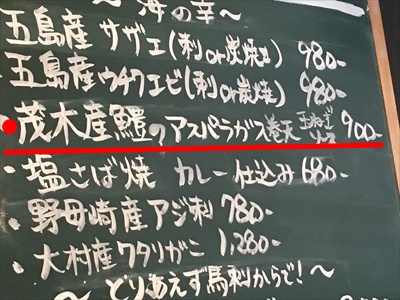 ～海の幸～
五島産 サザエ(刺or炭焼き) 980-
五島産ウチワエビ(刺or炭焼) 980-
・茂木産鱧のアスパラガス巻天 玉ねぎソース 900-
・塩さば焼 カレー仕込み 680-
・野母崎産アジ刺 780-
・大村産ワタリがに 1,280-
～とりあえず馬刺からで!～